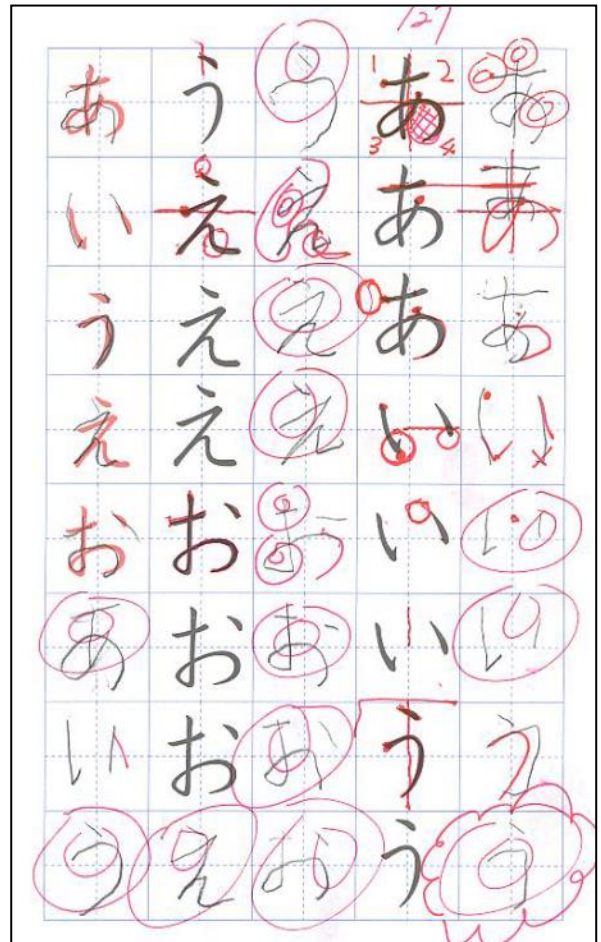 1/27
あああいいいうう
1 2 3 4
あああいいいうう
うえええおおおお
うえええおおおえ
あいうえおあいう